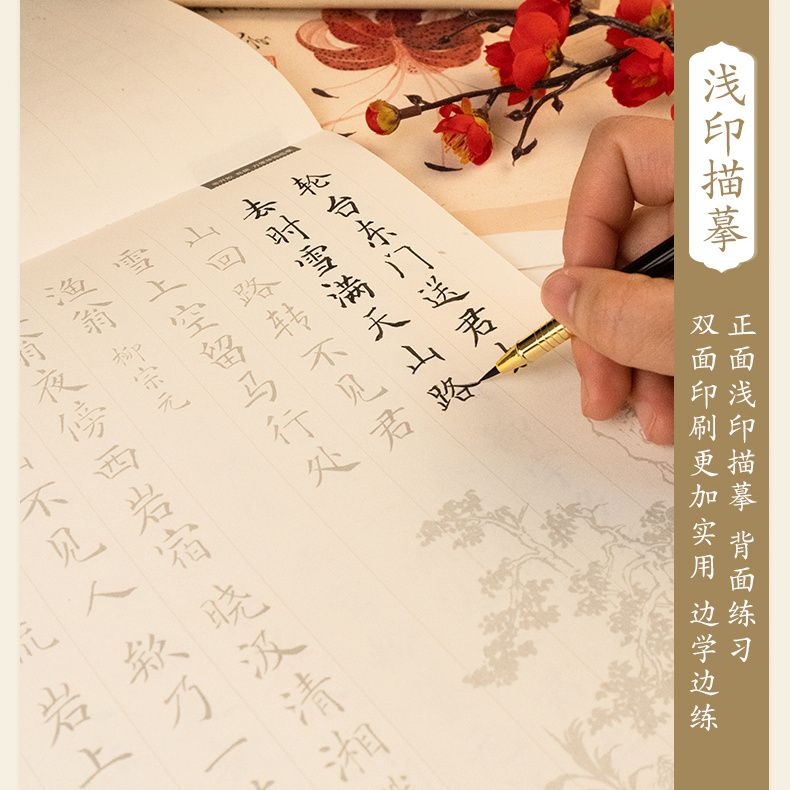 浅印描摹
正面浅印描摹 背面练习
双面印刷更加实用 边学边练
轮台东门送君
去时雪满天山路
山回路转不见君
雪上空留马行处
渔翁 柳宗元
翁夜傍西岩宿 晓汲清湘
不见人 欸乃一
岩上